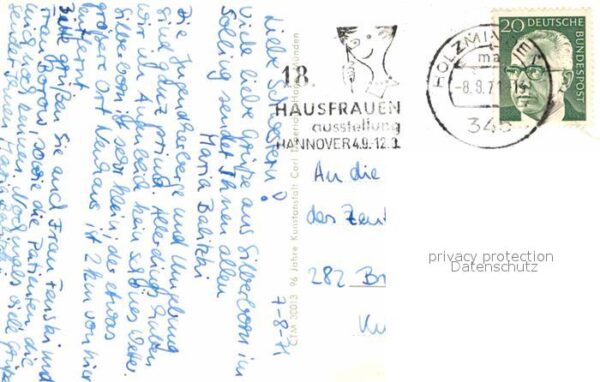 7-8-71
Liebe Schwestern!
Viele liebe Grüße aus Silberborn im
Solling sendet Ihnen allen
Maria
Die Jugendherberge und Umgebung
sind ganz prima. Allerdings haben
wir z. Zt. leider kein schönes Wetter.
Silberborn ist sehr klein, der etwas
größere Ort Neuhaus ist 2 km von hier
entfernt.
Bitte grüßen Sie auch Frau und
Frau sowie die Patienten die
mich noch kennen. Nochmals viele Grüße
18.
HAUSFRAUEN
ausstellung
HANNOVER 4.9.-12.9.
HOLZMINDEN
-8.8.71
345
20 DEUTSCHE
BUNDESPOST
CTM 30013 96 Jahre Kunstanstalt Carl
An die
der Zent
282 Br
privacy protection
Datenschutz